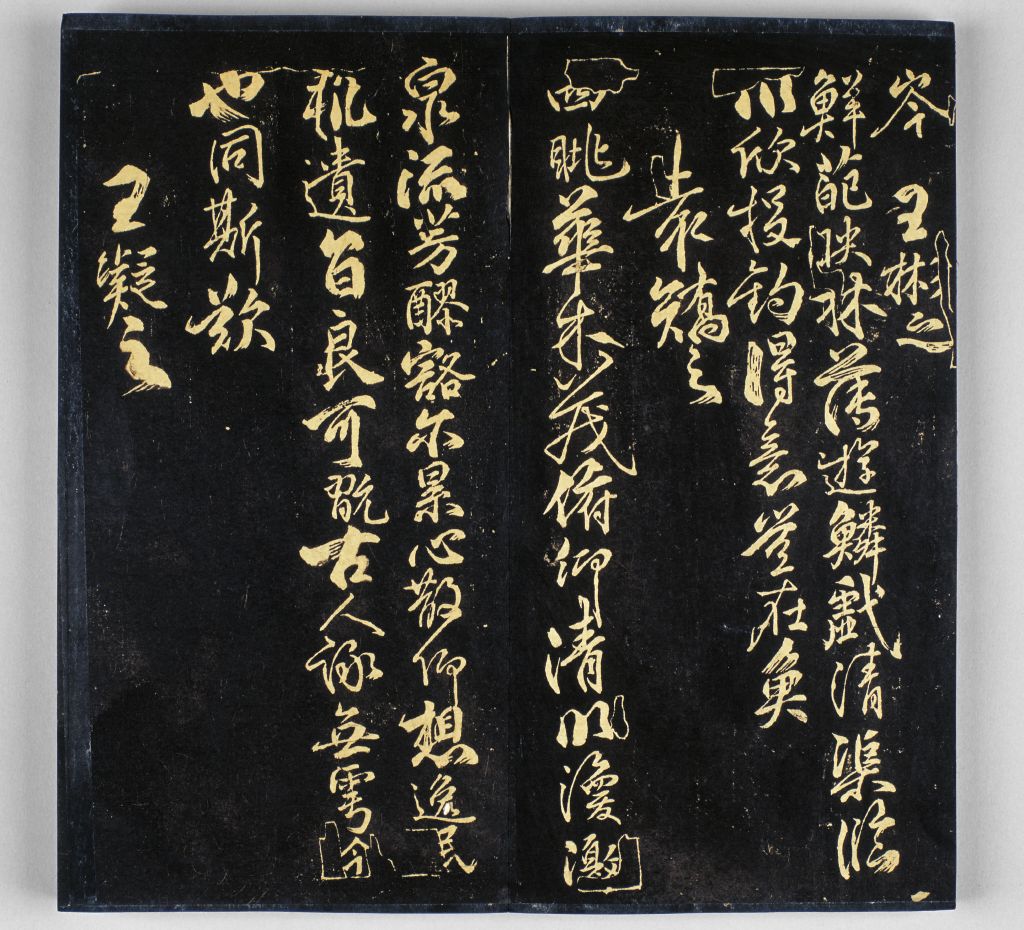 岑　王彬之
鮮葩映林薄遊鱗戲清渠臨
川欣投釣得意豈在魚
袁矯之
四眺華木茂俯仰清川渙激
泉流芳醪豁尔累心散仰想逸民
軌遺旨良可翫古人詠無雩今
也同斯歡
王凝之